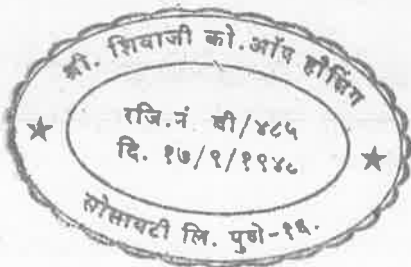 श्री. शिवाजी को.ऑप हौसिंग
रजि.नं बी/४८५
दि. १७/९/१९४८
सोसायटी लि. पुणे-१६.